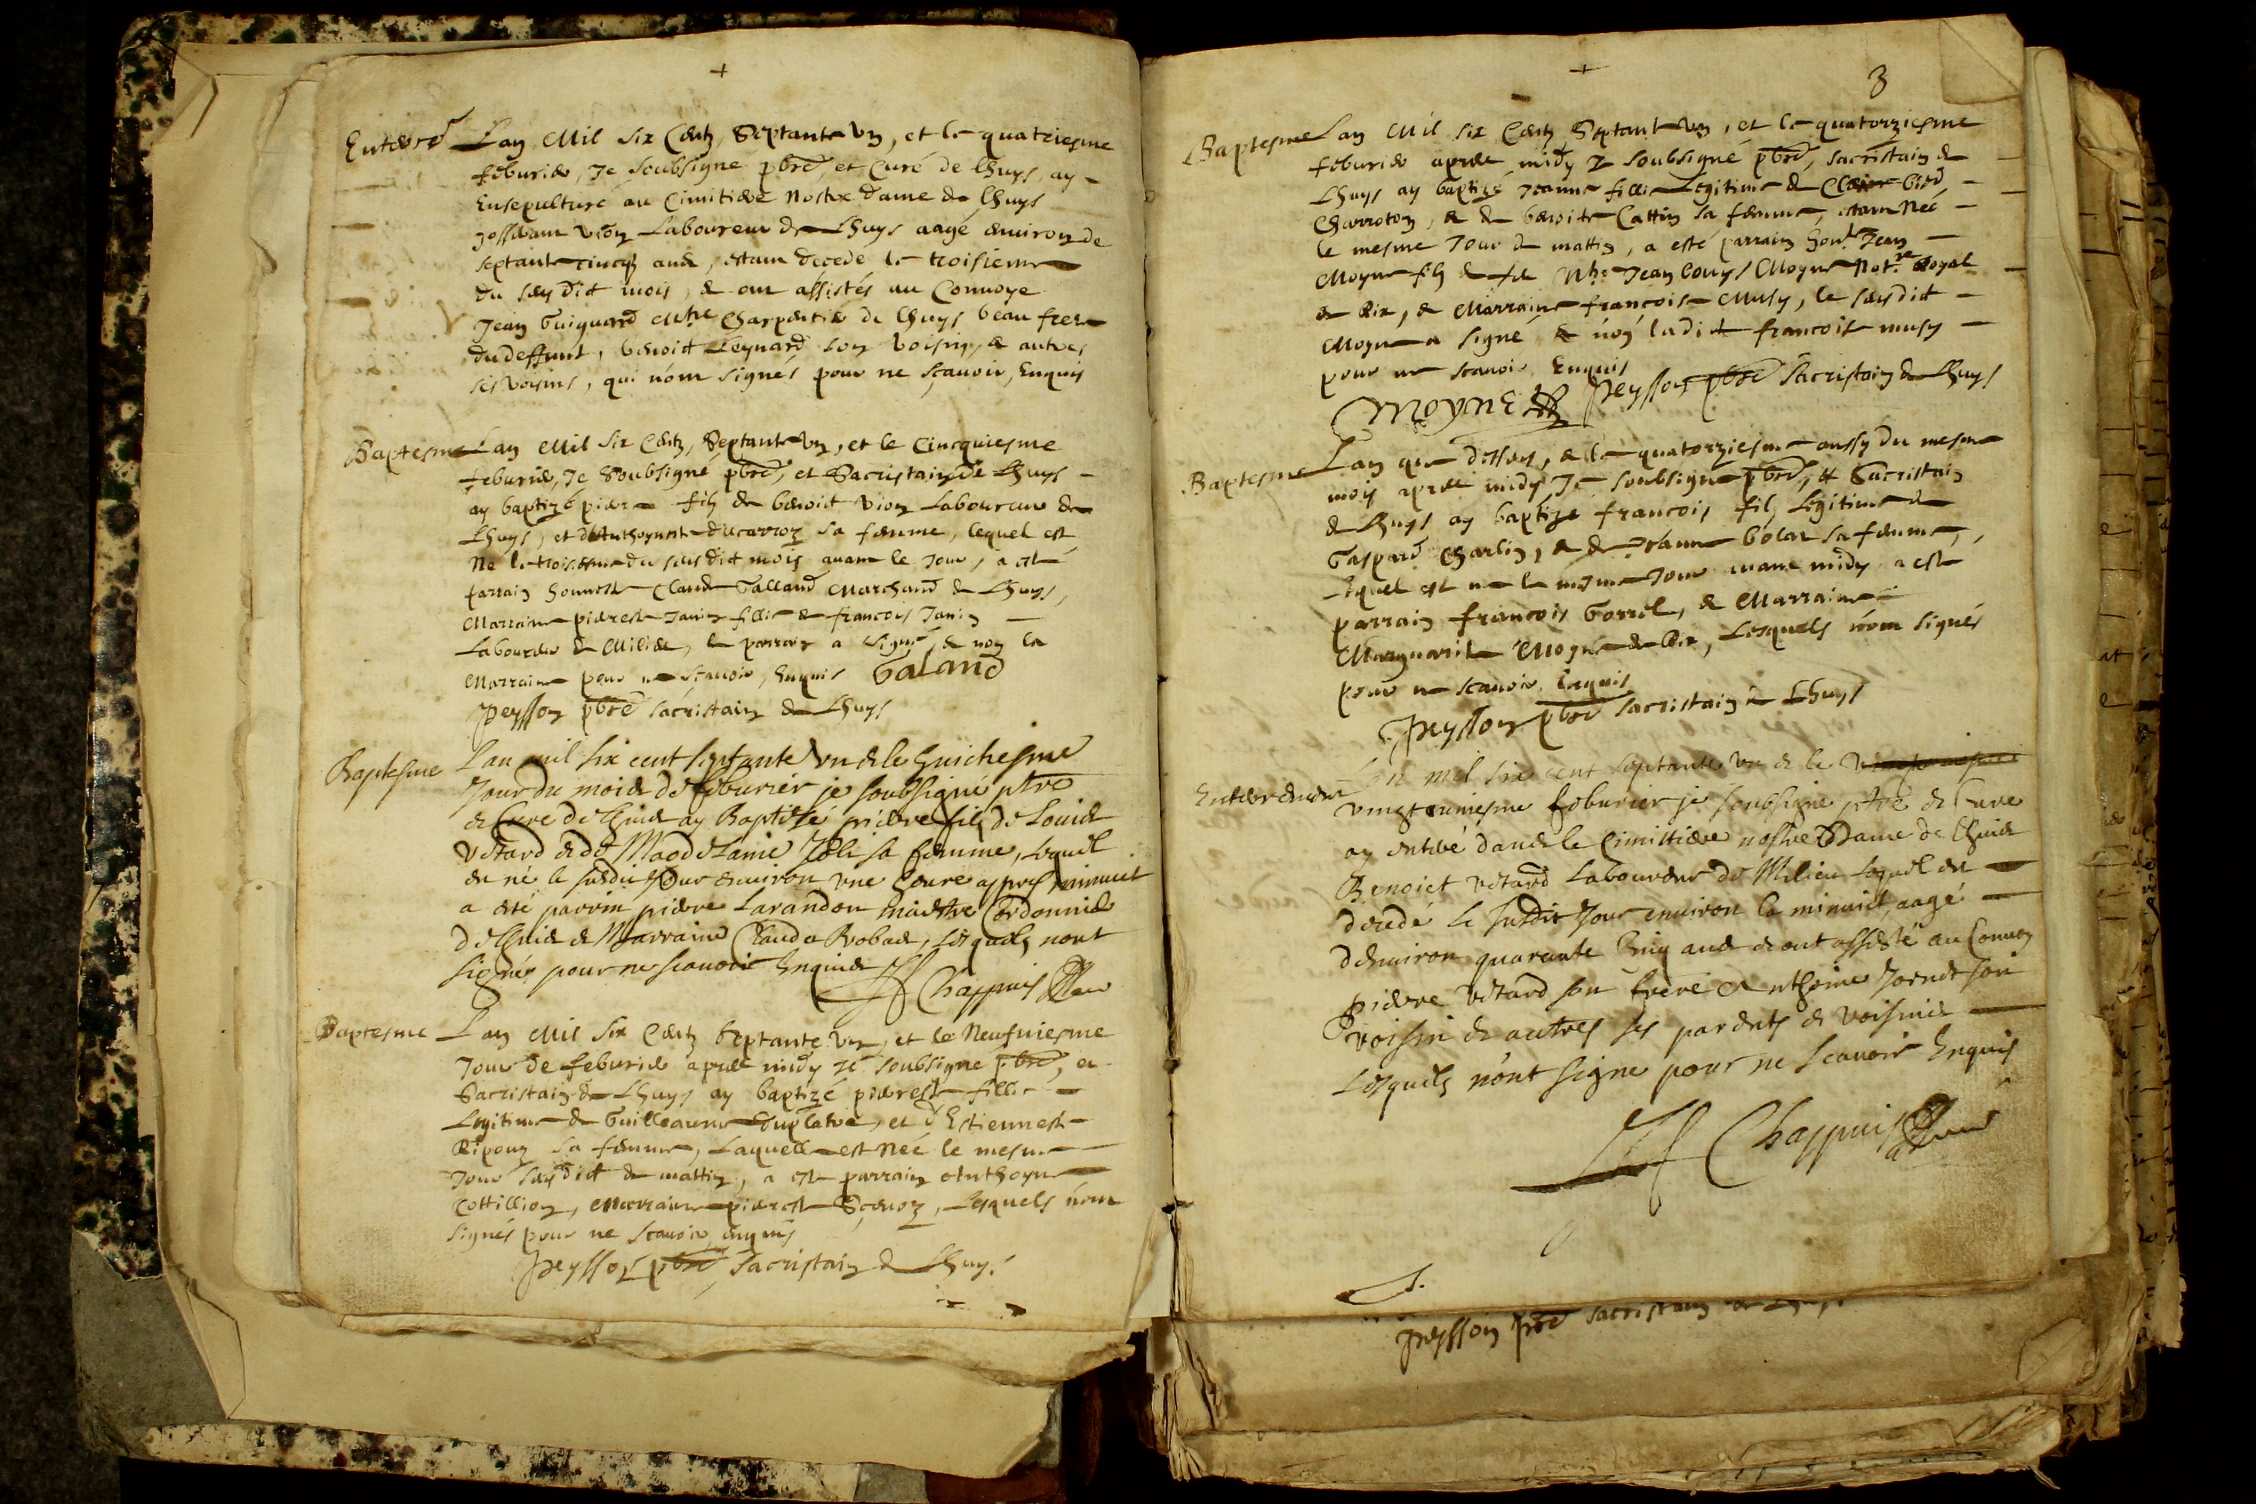 +
Enterré Lan Mil Six Centz Septante Un, et le quatriesme
feburier, Je soubsigne pbre, et Curé de Lhuys, ay
Ensepulturé au Cimitiere Nostre Dame de Lhuys
Vion Laboureur de Lhuys aagé environ de
septante cincq ans, estant decede le troisieme
du susdict mois, & ont assistés au Convoye
Jean Guignard Mtre Charpentier de Lhuys beau frere
du deffunt, benoict Leynard son voisin, & autres
ses voisins, qui nont signés pour ne sçavoir, Enquis
Baptesme Lan Mil Six Centz, Septante Un, et le Cincquiesme
feburier, Je Soubsigné pbre, et Sacristain de Lhuys
ay baptizé pierre filz de benoict Vion Laboureur de
Lhuys, et d'Anthoynete ducarroz sa femme, lequel est
Ne le troisieme du susdict mois avant le Jour, a esté
parrain honneste Claude Galland Marchand de Lhuys,
Marraine pierrette Janin fillie de francois Janin
Laboureur de Milieu, le parrain a signé, & non la
Marraine pour ne scavoir, Enquis Galand
Peysson pbre sacristain de Lhuys
Baptesme Lan mil six cent septante un & le huictiesme
Jour du mois de feburier je soubsigné ptre
& Cure de Lhuis ay Baptisé pierre filz de Louis
Vetard & de Magdelaine sa femme, lequel
est né le susdit Jour environ une heure apres minuict
a esté parrin pierre Larandon maistre Cordonnier
de Lhuis & Marraine Claudа Robad, lesquelz nont
signés pour ne scavoir Enquis
Chappuis
Baptesme Lan Mil Six Centz Septante Un, et le Neufuiesme
Jour de feburier apres midy Je soubsigne pbre, et
Sacristain de Lhuys ay baptizé pierrette fillie
Legitime de Guilleaume Duplatre, et d'Estiennette
Ripouz sa femme, Laquelle est Neé le mesme
Jour susdict de mattin, a esté parrain Anthoyne
Cottillion, Marraine pierrette, Lesquels nont
signés pour ne scavoir, enquis
Peysson pbre, sacristain de Lhuys
+
3
Baptesme Lan Mil six Centz Septante Un, et le quatorziesme
feburier apres midy Je soubsigné pbre, sacristain de
Lhuys ay baptizé Jeanne fillie Legitime de
Charroton, & de benoite Cattin sa femme, estant Neé
le mesme Jour de mattin, a esté parrain hon. Jean
Moyne filz de Jean Louys Moyne Not.re Royal
de Rix, & Marraine francoise Musy, le susdict
Moyne a signé & non ladicte francoise musy
pour ne scavoir, Enquis
MOYNE Peysson pbre Sacristain de Lhuys
Baptesme Lan que dessus, & le quatorziesme aussy du mesme
mois apres midy Je soubsigne pbre, et Sacristain
de Lhuys ay baptize francois filz Legitime de
Gaspard Charlin, & de Jeanne Golar sa femme,
Lequel est ne le mesme Jour avant midy a esté
parrain francois Gorrel, & Marraine
Marguarite Moyne de Rix, Lesquels nont signés
pour ne scavoir, Enquis
Peysson pbre sacristain de Lhuys
Lan mil six cent septante un & le
vingtuniesme feburier je soubsigne ptre & Cure
ay enterré dans le Cimittiere nostre Dame de Lhuis
Benoict Vetard Laboureur de Milieu lequel est
decedé le susdit Jour environ la minuict, aagé
denviron quarante Cinq ans & ont assisté au Convoy
Pierre Vetard son frere Anthoine son
voisin & autres ses parents & voisins
Lesquelz nont signe pour ne scavoir Enquis
Chappuis
Peysson pbre sacristain de Lhuys